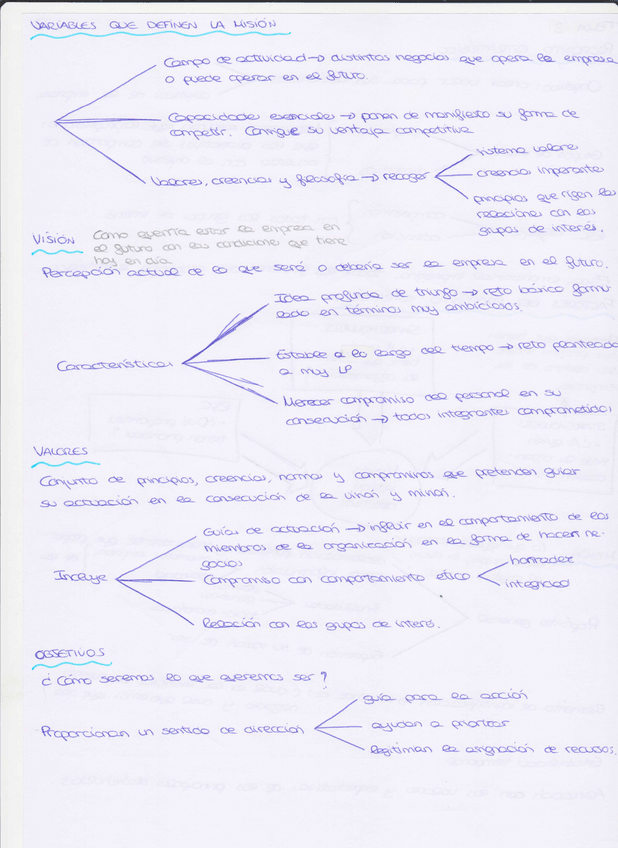 VARIABLES QUE DEFINEN LA MISIÓN
Campo de actividad → distintos negocios que opera la empresa
o puede operar en el futuro.
Capacidades esenciales → ponen de manifiesto su forma de
competir. Consigue su ventaja competitiva
Valores, creencias y filosofía → recoger
sistema valores
creencias imperantes
principios que rigen las
relaciones con los
grupos de interés.
VISIÓN
Como querría estar la empresa en
el futuro con las condiciones que tiene
hoy en día.
Percepción actual de lo que será o debería ser la empresa en el futuro.
Características
Idea profunda de triunfo → reto básico formu
lado en términos muy ambiciosos.
Estable a lo largo del tiempo → reto planteado
a muy LP
Merecer compromiso del personal en su
consecución → todos integrantes comprometidos
VALORES
Conjunto de principios, creencias, normas y compromisos que pretenden guiar
su actuación en la consecución de la visión y misión.
Incluye
Guías de actuación → influir en el comportamiento de los
miembros de la organización en la forma de hacer ne-
gocios
Compromiso con comportamiento ético
honradez
integridad
Relación con los grupos de interés.
OBJETIVOS
¿Cómo seremos lo que queremos ser?
Proporcionan un sentido de dirección
guía para la acción
ayudan a priorizar
legitiman la asignación de recursos.